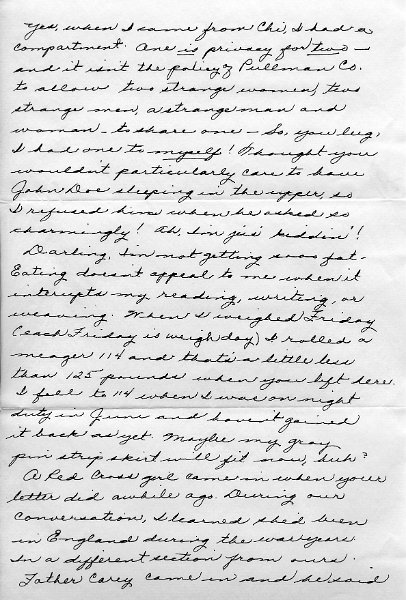 Yes, when I came from Chi, I had a
compartment. One is privacy for two —
and it isn't the policy of Pullman Co.
to allow two strange women, two
strange men, a strange man and
woman - to share one - So, you lug,
I had one to myself! Thought you
wouldn't particularly care to have
John Doe sleeping in the upper, so
I refused him when he asked so
charmingly! Ah, I'm jus' kiddin'!
Darling, I'm not getting sooo fat.
Eating doesn't appeal to me when it
interrupts my reading, writing, or
weaving. When I weighed Friday
(each Friday is weigh day) I rolled a
meager 114 and that's a little less
than 125 pounds when you left here.
I fell to 114 when I was on night
duty in June and haven't gained
it back as yet. Maybe my gray
pin strip skirt will fit now, huh?
A Red Cross girl came in when your
letter did awhile ago. During our
conversation, I learned she'd been
in England during the war years
in a different section from ours.
Father Carey came in and he said